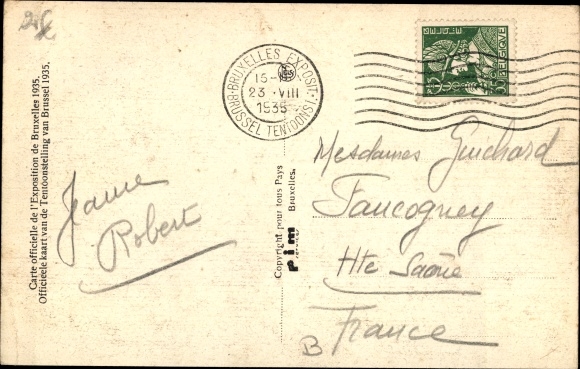 Carte officielle de l'Exposition de Bruxelles 1935.
Officieele kaart van de Tentoonstelling van Brussel 1935.
Robert
BRUXELLES EXPOSIT.
15-
23 VIII
1935
BRUSSEL TENTOONST.
Copyright pour tous Pays
pim
Bruxelles.
BELGIQUE
BELGIE
Mesdames Guichard
Faucogney
Hte Saône
France
B